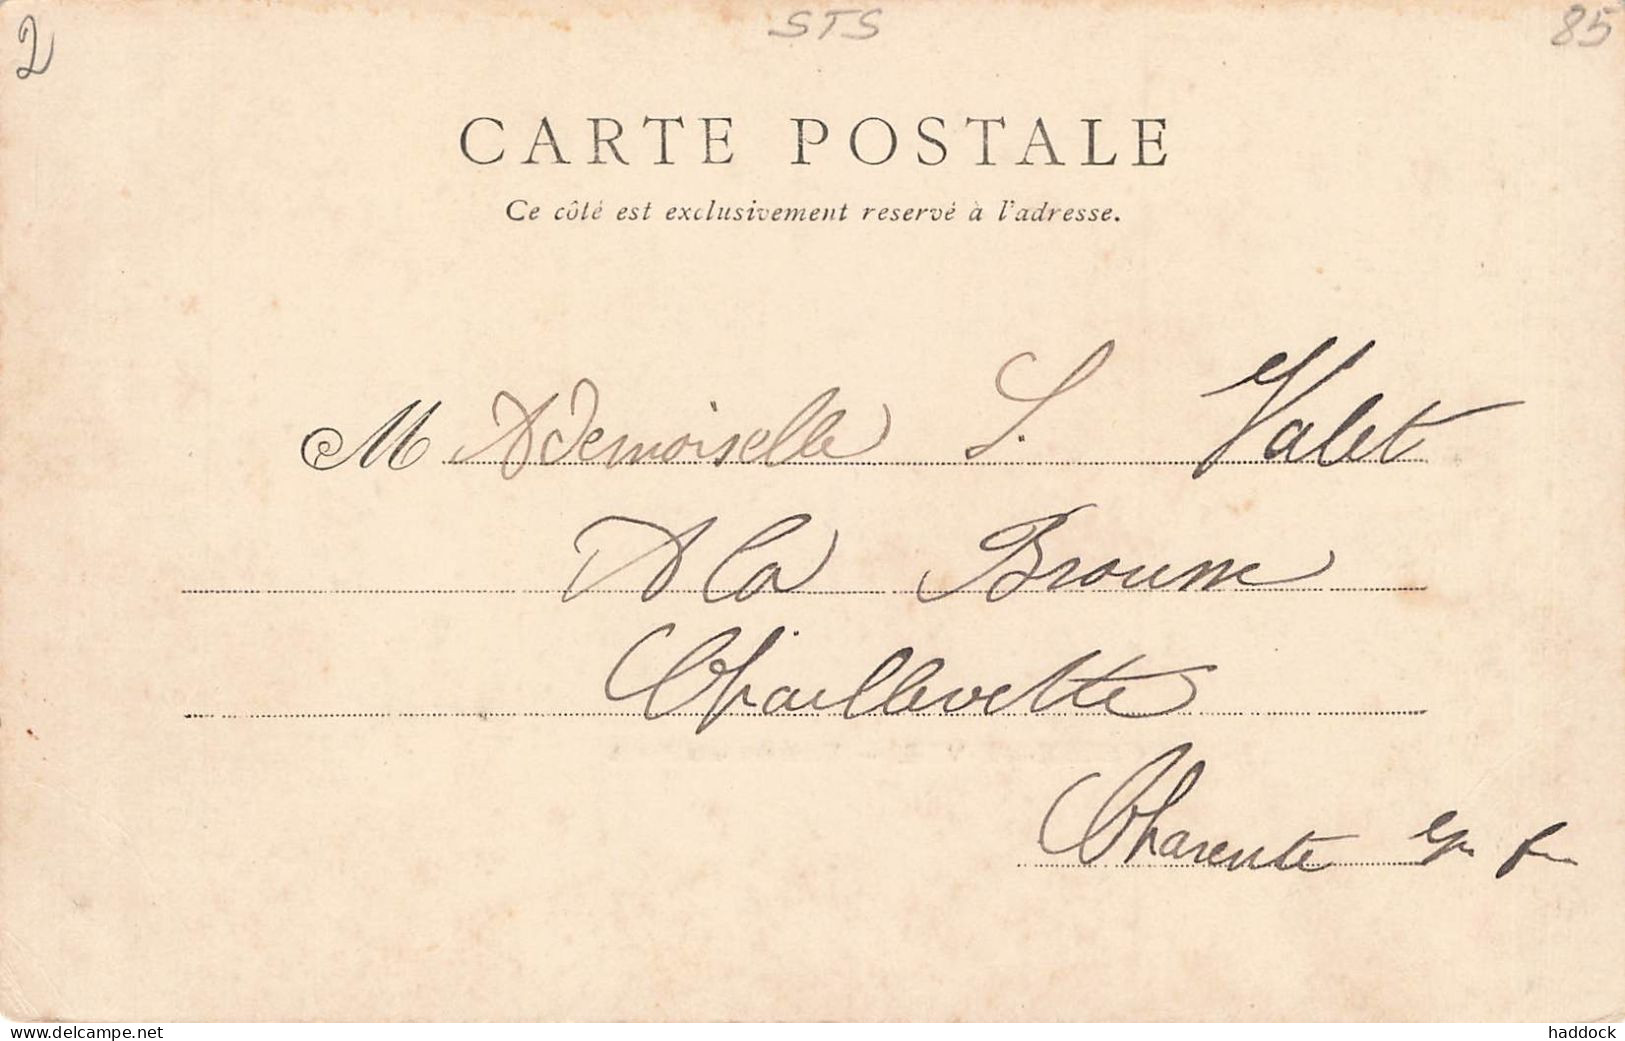 2 STS 85
CARTE POSTALE
Ce côté est exclusivement reservé à l'adresse.
MAdemoiselle S. Valet
A la Brousse
Chaillevette
Charente
delcampe.net
haddock